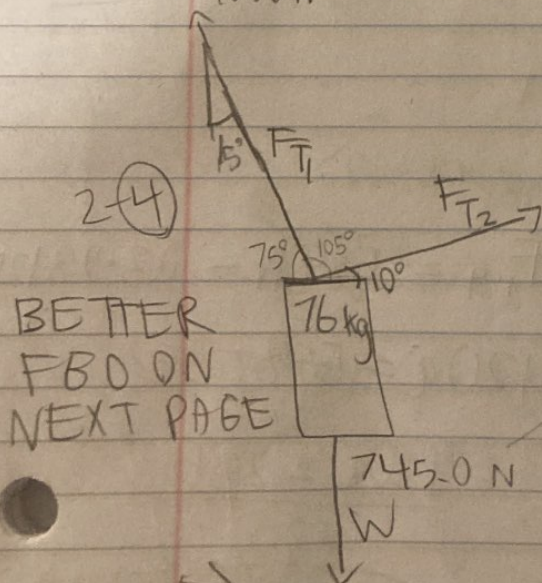 15°
F_T1
2-4
F_T2
75° 105°
10°
76 kg
BETTER
FBD ON
NEXT PAGE
745.0 N
W